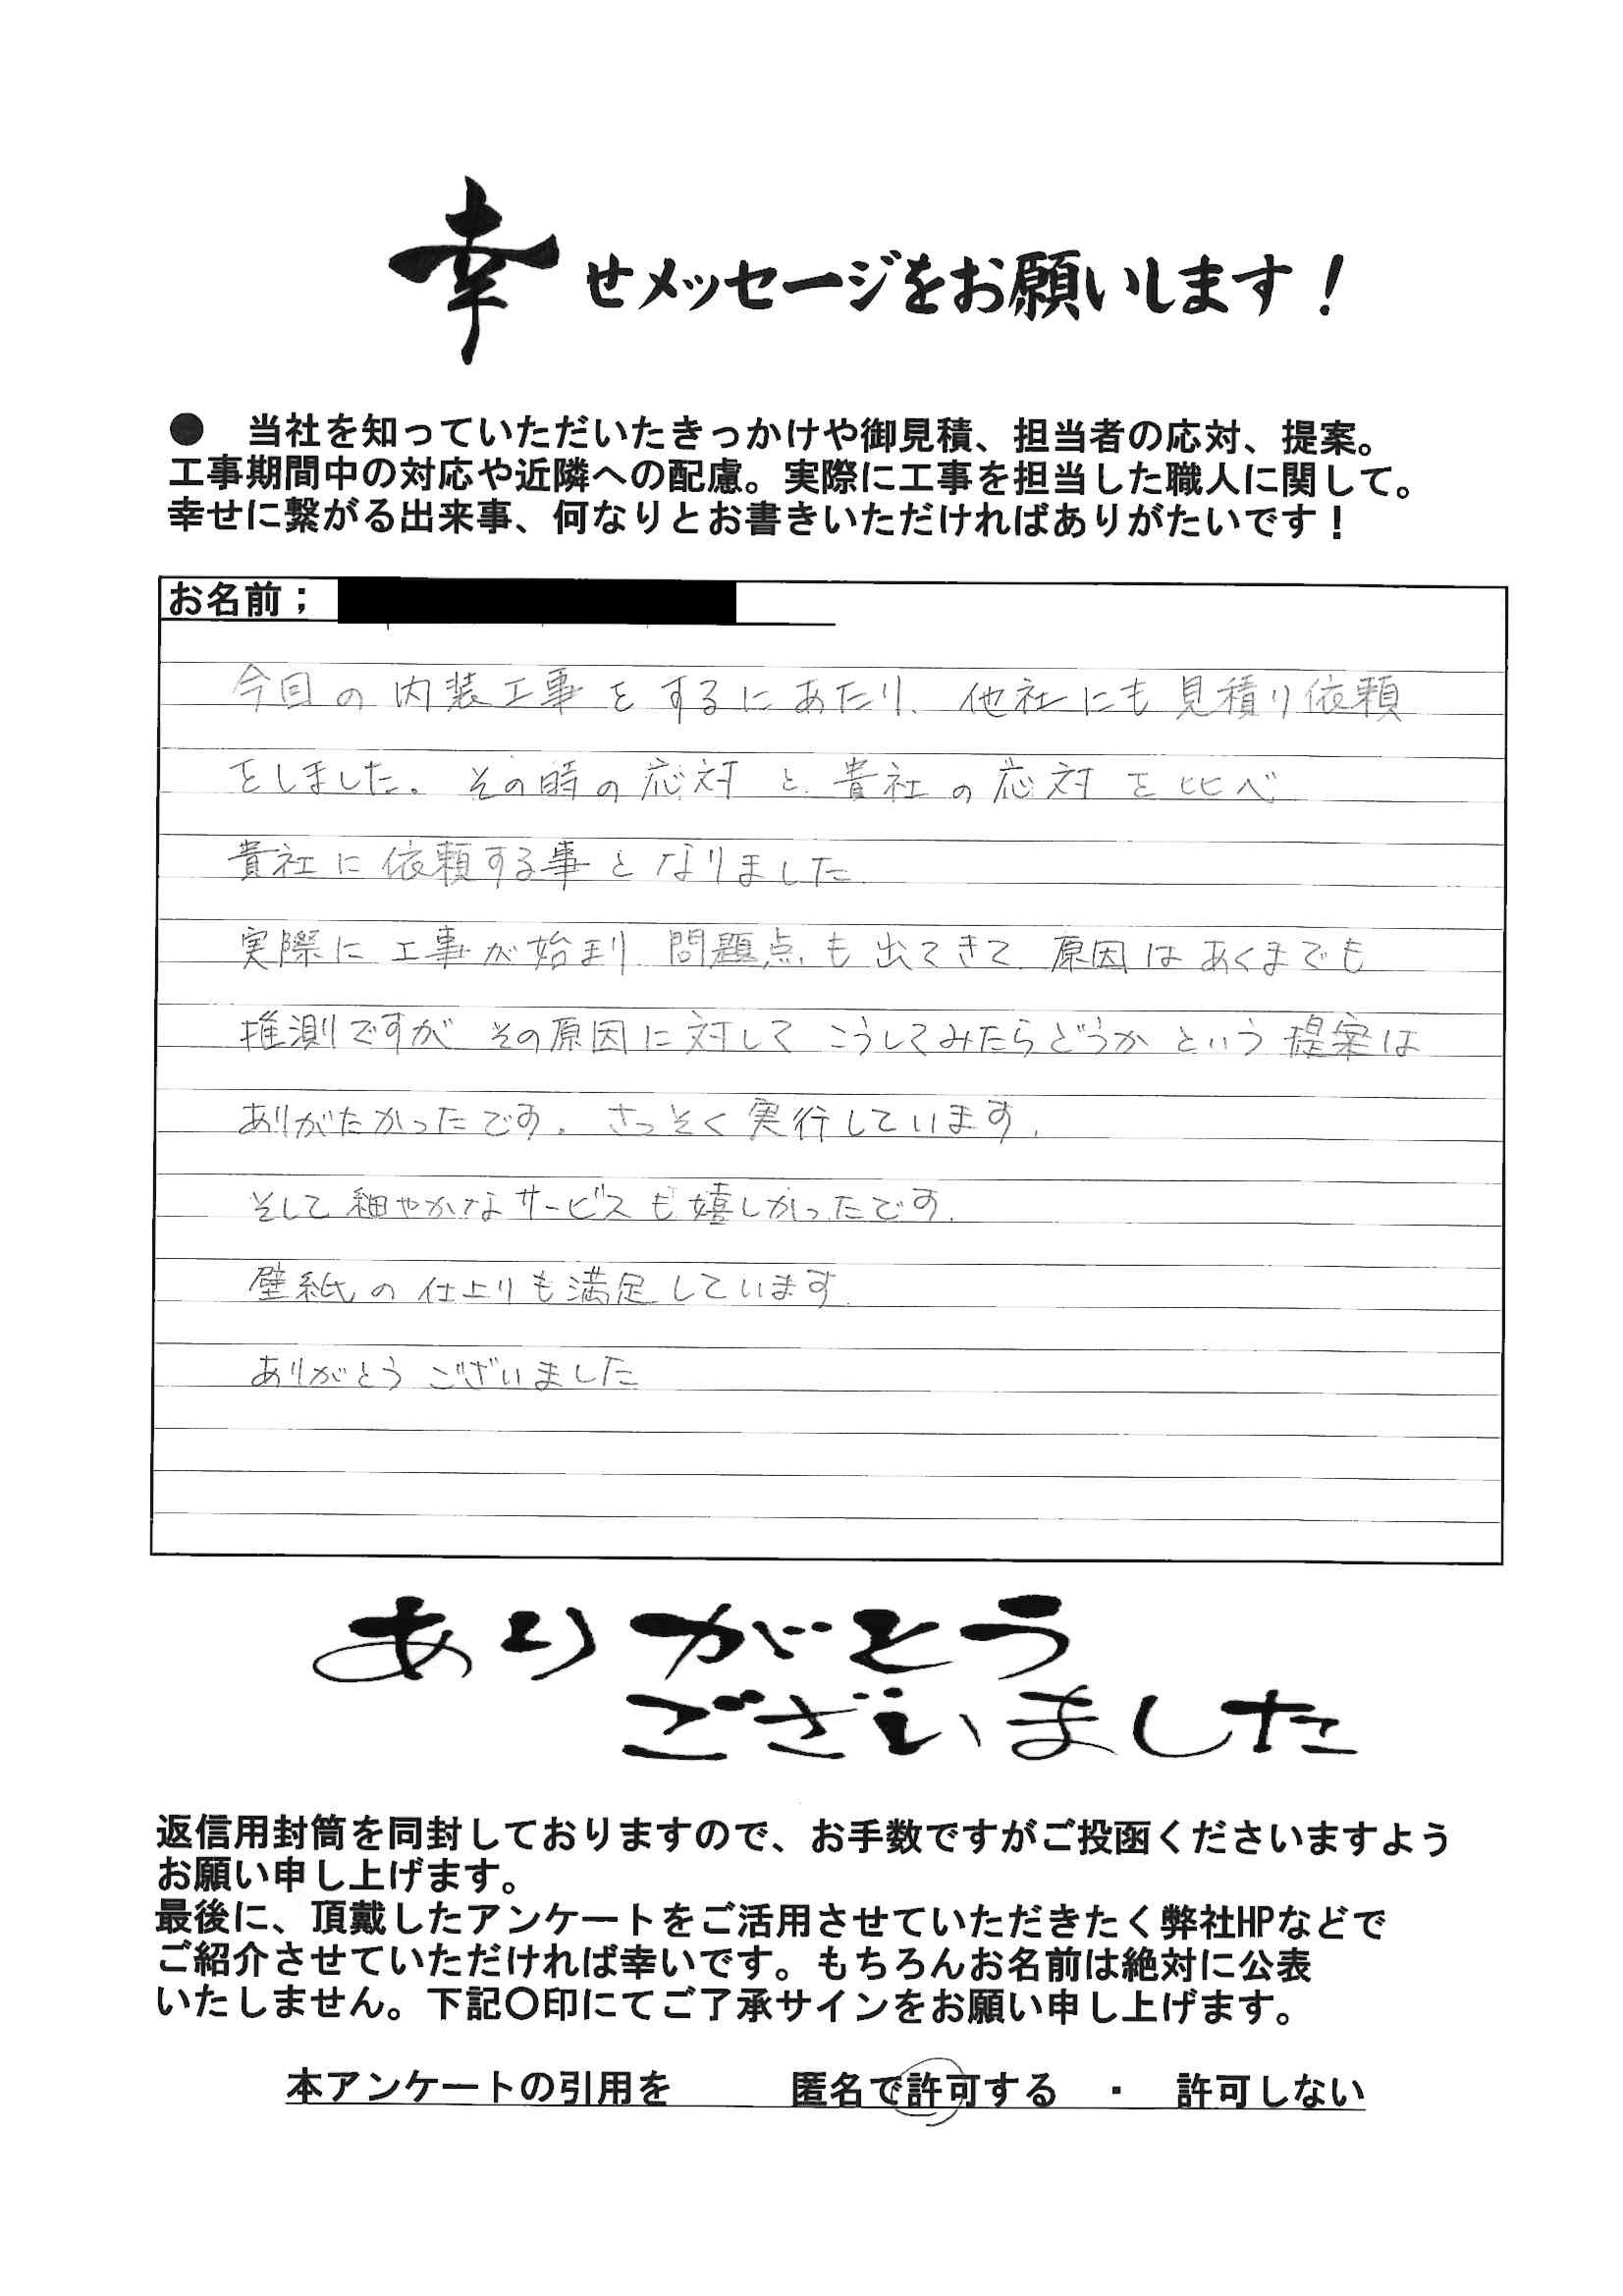 幸せメッセージをお願いします！
● 当社を知っていただいたきっかけや御見積、担当者の応対、提案。
工事期間中の対応や近隣への配慮。実際に工事を担当した職人に関して。
幸せに繋がる出来事、何なりとお書きいただければありがたいです！
お名前；
今回の内装工事をするにあたり、他社にも見積り依頼
をしました。その時の応対と、貴社の応対を比べ
貴社に依頼する事となりました
実際に工事が始まり、問題点も出てきて、原因はあくまでも
推測ですが その原因に対して こうしてみたらどうか という提案は
ありがたかったです。さっそく実行しています。
そして細やかなサービスも嬉しかったです。
壁紙の仕上りも満足しています。
ありがとうございました
ありがとう
ございました
返信用封筒を同封しておりますので、お手数ですがご投函くださいますよう
お願い申し上げます。
最後に、頂戴したアンケートをご活用させていただきたく弊社HPなどで
ご紹介させていただければ幸いです。もちろんお名前は絶対に公表
いたしません。下記〇印にてご了承サインをお願い申し上げます。
本アンケートの引用を 匿名で許可する ・ 許可しない